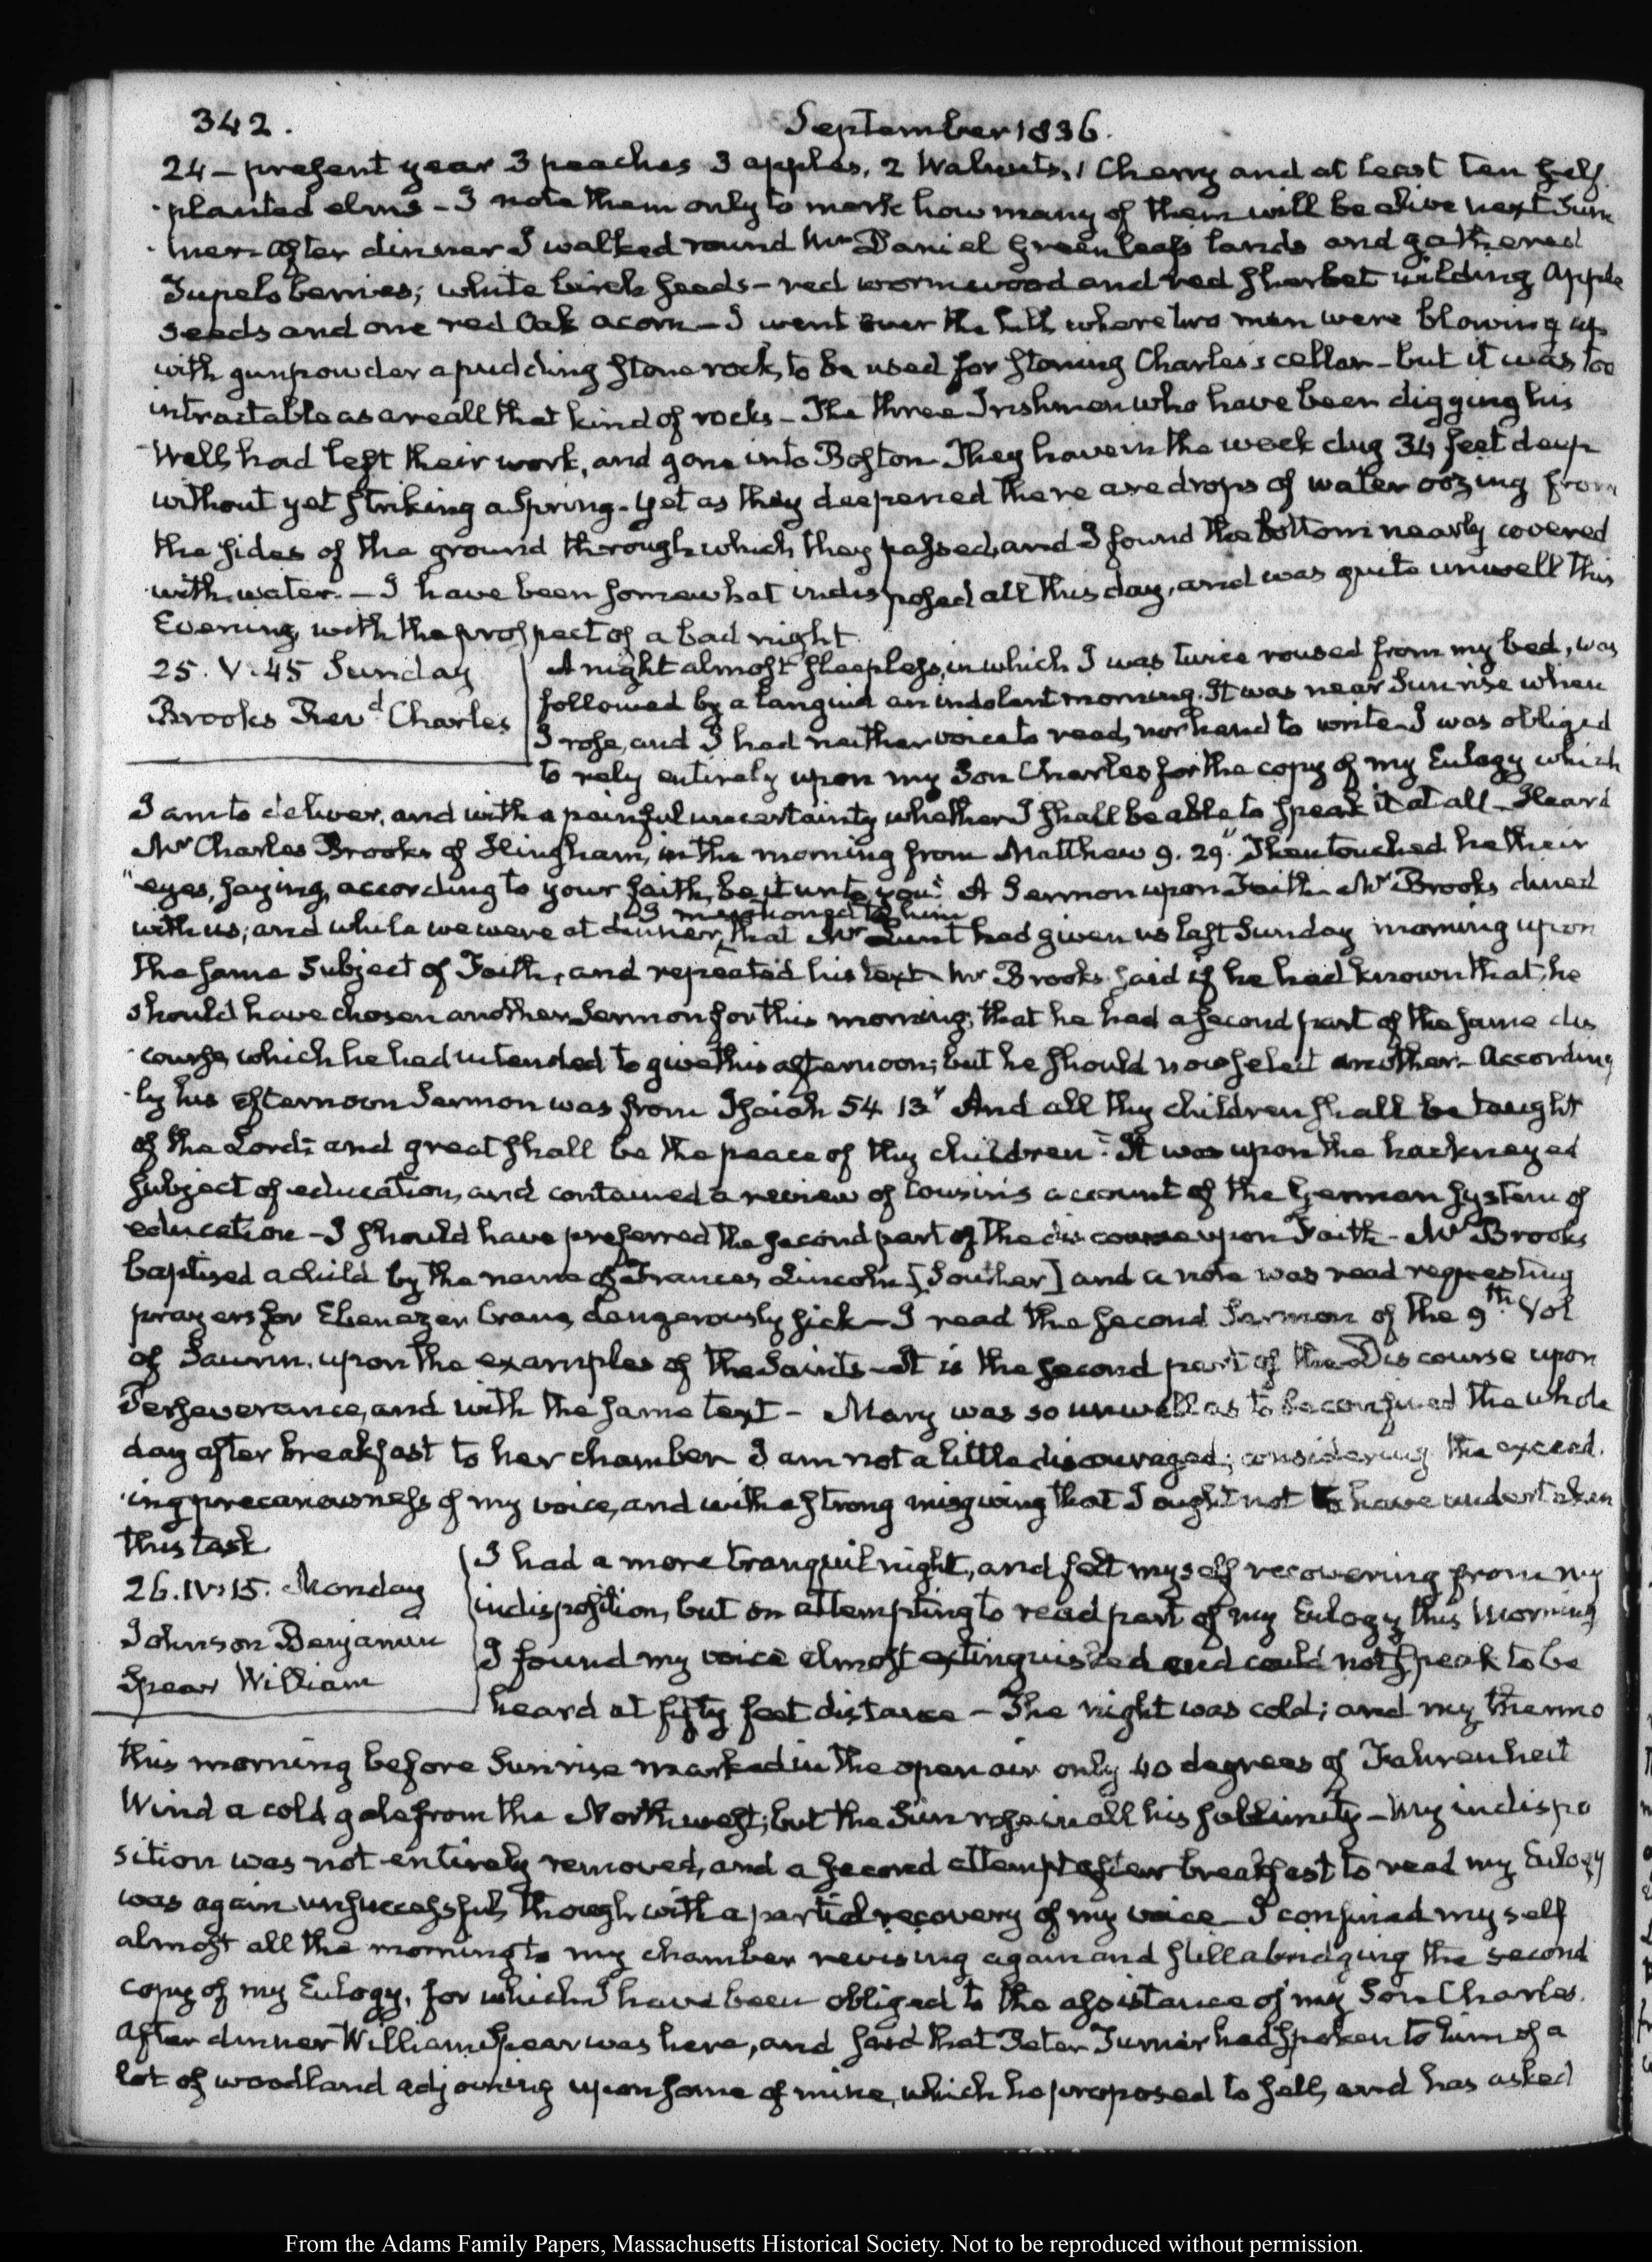 342.
September 1836.
24 - present year 3 peaches 3 apples, 2 Walnuts, 1 Cherry and at least ten self
planted elms - I note them only to mark how many of them will be alive next Sum
mer. After dinner I walked round Mr Daniel Greenleafs lands and gathered
Tupelo berries; white birch seeds - red wormwood and red sherbet wilding Apple
seeds and one red Oak acorn - I went over the hill where two men were blowing up
with gunpowder a pudding stone rock, to be used for stoning Charles's cellar - but it was too
intractable as are all that kind of rocks - The three Irishmen who have been digging his
Well, had left their work, and gone into Boston. They have in the week dug 34 feet deep
without yet striking a Spring - yet as they deepened there are drops of water oozing from
the sides of the ground through which they passed, and I found the bottom nearly covered
with water. - I have been somewhat indisposed all this day, and was quite unwell this
Evening, with the prospect of a bad night.
25. V. 45 Sunday
Brooks Revd Charles
A night almost sleepless, in which I was twice roused from my bed, was
followed by a languid an indolent morning. It was near Sunrise when
I rose, and I had neither voice to read, nor hand to write. I was obliged
to rely entirely upon my Son Charles for the copy of my Eulogy which
I am to deliver, and with a painful uncertainty whether I shall be able to speak it at all - Heard
Mr Charles Brooks of Hingham, in the morning from Matthew 9. 29. "Then touched he their
"eyes, saying, according to your faith, be it unto you." A Sermon upon Faith. Mr Brooks dined
I mentioned to him
with us; and while we were at dinner, that Mr Lunt had given us last Sunday morning upon
the same Subject of Faith, and repeated his text - Mr Brooks said if he had known that, he
should have chosen another Sermon for this morning; that he had a second part of the same dis
course, which he had intended to give this afternoon; but he should now select another - According
ly his afternoon Sermon was from Isaiah 54 13 "And all thy children shall be taught
of the Lord; and great shall be the peace of thy children." It was upon the hackneyed
subject of education, and contained a review of Cousin's account of the German system of
education - I should have preferred the second part of the discourse upon Faith - Mr Brooks
baptised a child by the name of Frances Lincoln [Souther] and a note was read requesting
prayers for Ebenezer Crane, dangerously sick - I read the second Sermon of the 9th Vol
of Saurin, upon the examples of the Saints - It is the second part of the Discourse upon
Perseverance, and with the same text - Mary was so unwell as to be confined the whole
day after breakfast to her chamber. I am not a little discouraged; considering the exceed
ing precariousness of my voice, and with a strong misgiving that I ought not to have undertaken
this task.
26. IV. 15. Monday
Johnson Benjamin
Spear William
I had a more tranquil night, and felt myself recovering from my
indisposition, but on attempting to read part of my Eulogy this Morning
I found my voice almost extinguished and could not speak to be
heard at fifty feet distance - The night was cold; and my thermo
this morning before Sunrise marked in the open air only 40 degrees of Fahrenheit
Wind a cold gale from the Northwest; but the Sun rose in all his sublimity - My indispo
sition was not entirely removed, and a second attempt after breakfast to read my Eulogy
was again unsuccessful, though with a partial recovery of my voice - I confined myself
almost all the morning to my chamber revising again and still abridging the second
copy of my Eulogy, for which I have been obliged to the assistance of my Son Charles.
After dinner William Spear was here, and said that Peter Turner had spoken to him of a
lot of woodland adjoining upon some of mine, which he proposed to sell, and has asked
From the Adams Family Papers, Massachusetts Historical Society. Not to be reproduced without permission.